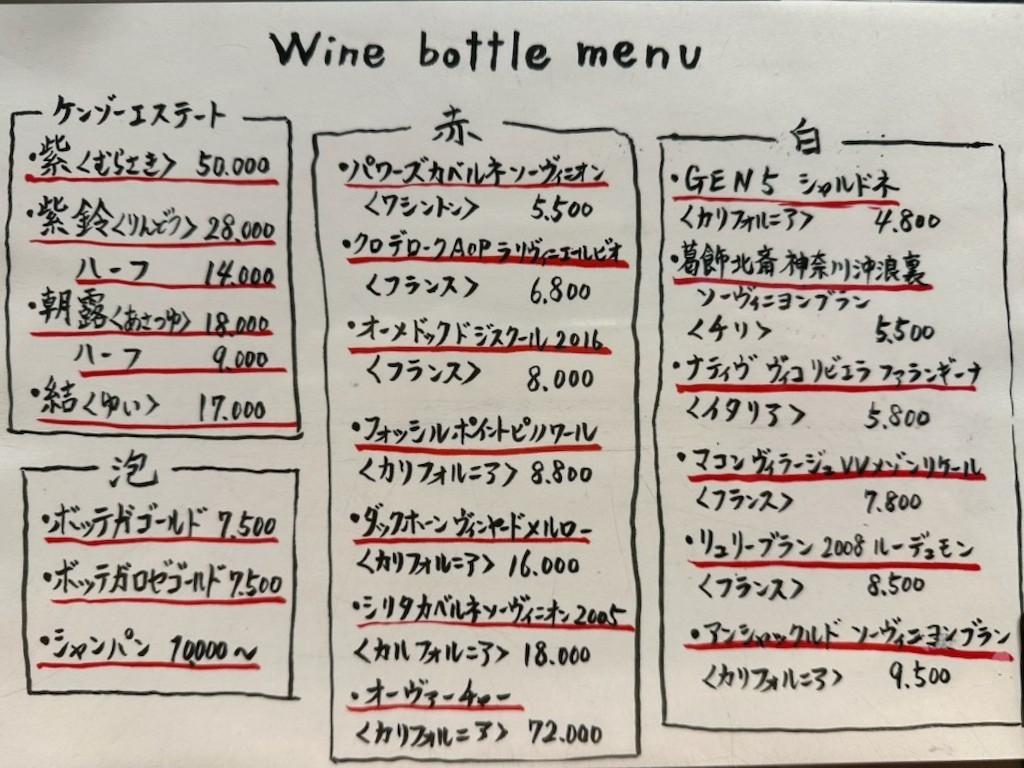 Wine bottle menu
ケンゾーエステート
・紫〈むらさき〉 50.000
・紫鈴〈りんどう〉 28.000
ハーフ 14.000
・朝露〈あさつゆ〉 18.000
ハーフ 9.000
・結〈ゆい〉 17.000
泡
・ボッテガゴールド 7.500
・ボッテガロゼゴールド 7.500
・シャンパン 10000〜
赤
・パワーズカベルネソーヴィニオン
〈ワシントン〉 5.500
・クロデロークAOPラリヴィエールビオ
〈フランス〉 6.800
・オーメドックドジスクール 2016
〈フランス〉 8.000
・フォッシルポイントピノノワール
〈カリフォルニア〉 8.800
・ダックホーンヴィンヤードメルロー
〈カリフォルニア〉 16.000
・シリタカベルネソーヴィニオン 2005
〈カルフォルニア〉 18.000
・オーヴァーチャー
〈カリフォルニア〉 72.000
白
・GEN5 シャルドネ
〈カリフォルニア〉 4.800
・葛飾北斎 神奈川沖浪裏
ソーヴィニヨンブラン
〈チリ〉 5.500
・ナティヴ ヴィコリビエラ ファランギーナ
〈イタリア〉 5.800
・マコンヴィラージュVVメゾンリケール
〈フランス〉 7.800
・リュリーブラン 2008 ルーデュモン
〈フランス〉 8.500
・アンシャックルド ソーヴィニヨンブラン
〈カリフォルニア〉 9.500